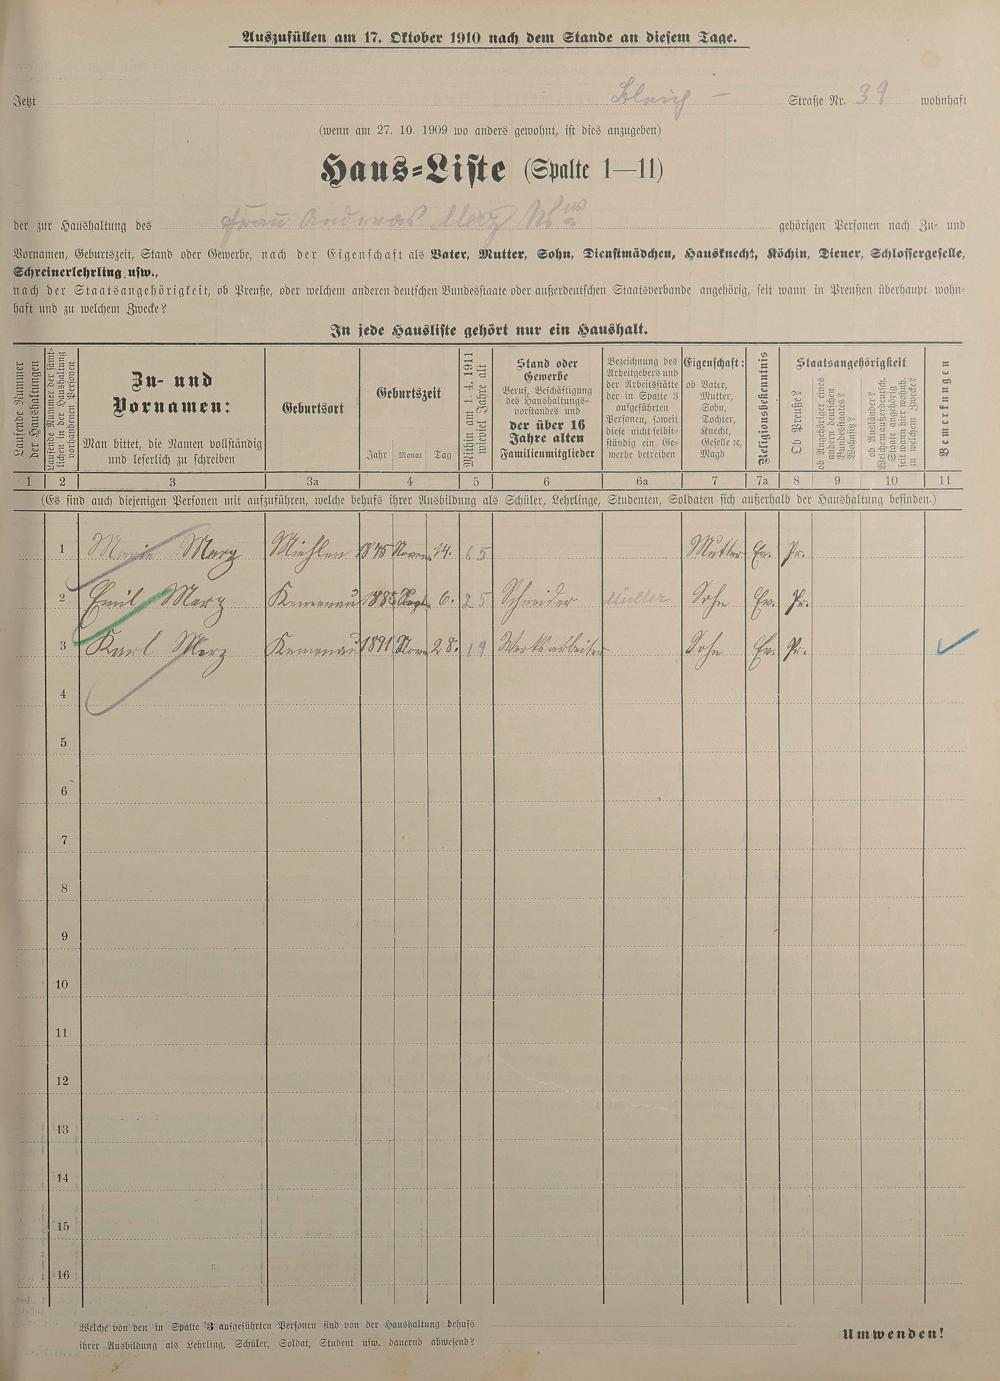 Auszufüllen am 17. Oktober 1910 nach dem Stande an diesem Tage.
Jetzt Bleich- Straße Nr. 39 wohnhaft
(wenn am 27. 10. 1909 wo anders gewohnt, ist dies anzugeben)
Haus-Liste (Spalte 1—11)
der zur Haushaltung des Frau Andreas Merz Ww gehörigen Personen nach Zu- und
Vornamen, Geburtszeit, Stand oder Gewerbe, nach der Eigenschaft als Vater, Mutter, Sohn, Dienstmädchen, Hausknecht, Köchin, Diener, Schlossergeselle,
Schreinerlehrling usw.,
nach der Staatsangehörigkeit, ob Preuße, oder welchem anderen deutschen Bundesstaate oder außerdeutschen Staatsverbande angehörig, seit wann in Preußen überhaupt wohn-
haft und zu welchem Zwecke?
In jede Hausliste gehört nur ein Haushalt.
Laufende Nummer
der Haushaltungen
Laufende Nummer der sämt-
lichen in der Haushaltung
vorhandenen Personen
Zu- und
Vornamen:
Man bittet, die Namen vollständig
und leserlich zu schreiben
Geburtsort
Geburtszeit
Jahr Monat Tag
Mithin am 1. 4. 1911
wieviel Jahre alt
Stand oder
Gewerbe
Beruf, Beschäftigung
des Haushaltungs-
vorstandes und
der über 16
Jahre alten
Familienmitglieder
Bezeichnung des
Arbeitgebers und
der Arbeitsstätte
der in Spalte 3
aufgeführten
Personen, soweit
diese nicht selbst-
ständig ein Ge-
werbe betreiben
Eigenschaft:
ob Vater,
Mutter,
Sohn,
Tochter,
Knecht,
Geselle ec,
Magd
Religionsbekenntnis
Staatsangehörigkeit
Ob Preuße?
ob Angehöriger eines
andern deutschen
Bundesstaates?
Woher?
ob Ausländer?
Welchem außerdeutsch.
Staate angehörig
seit wann hier wohnh.
zu welchem Zwecke?
Bemerkungen
1 2 3 3a 4 5 6 6a 7 7a 8 9 10 11
(Es sind auch diejenigen Personen mit aufzuführen, welche behufs ihrer Ausbildung als Schüler, Lehrlinge, Studenten, Soldaten sich außerhalb der Haushaltung befinden.)
1 Marie Merz Miehlen 1845 Novem. 14. 65 Mutter Ev. Pr.
2 Emil Merz Kemmenau 1885 Sept. 6. 25 Schneider Müller Sohn Ev. Pr.
3 Karl Merz Kemmenau 1891 Nove 28. 19 Werksarbeiter Sohn Ev. Pr.
4
5
6
7
8
9
10
11
12
13
14
15
16
Welche von den in Spalte 3 aufgeführten Personen sind von der Haushaltung behufs
ihrer Ausbildung als Lehrling, Schüler, Soldat, Student usw. dauernd abwesend?
Umwenden!